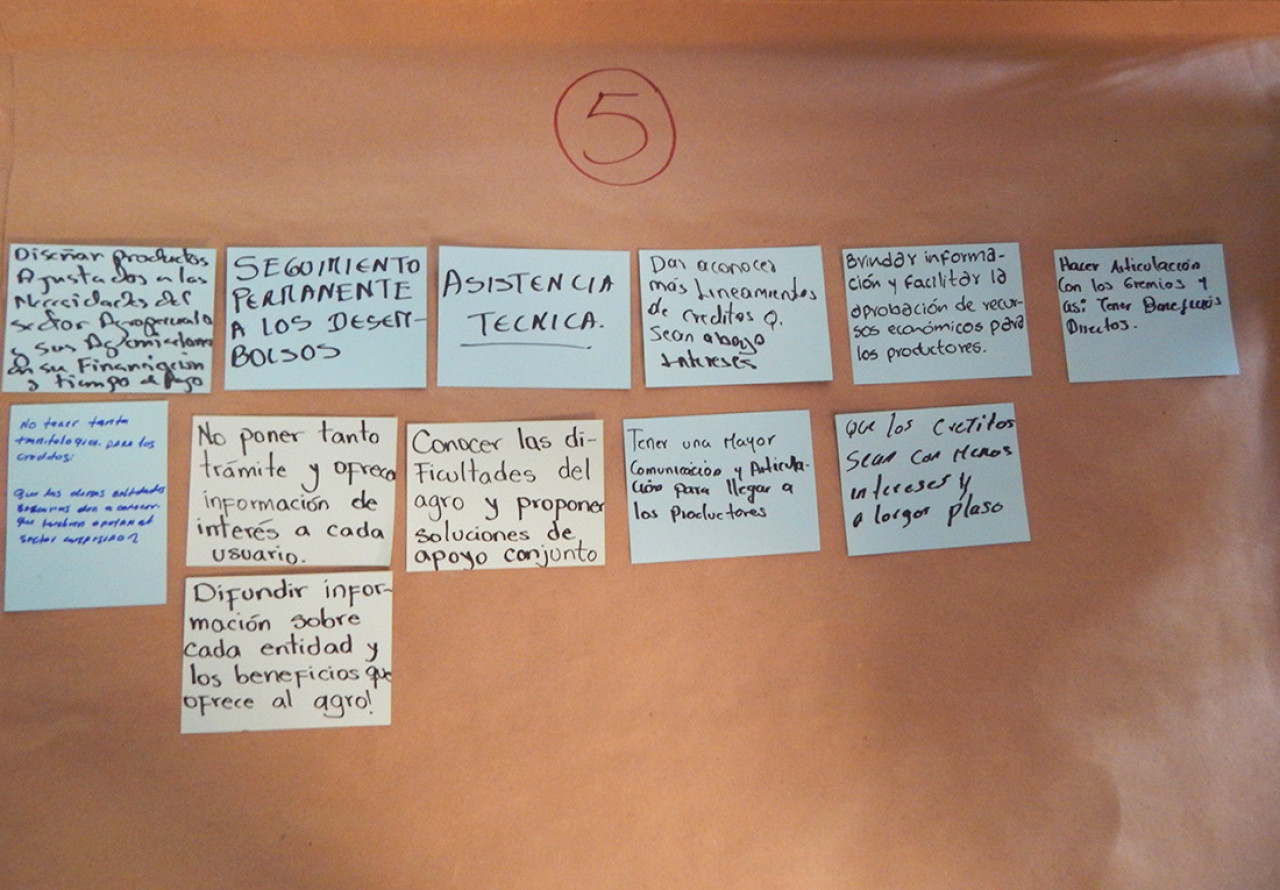 5
Diseñar productos
Ajustados a las
Necesidades del
sector Agropecuario
y sus
en su Financiación
y tiempo de pago
SEGUIMIENTO
PERMANENTE
A LOS DESEM-
BOLSOS
ASISTENCIA
TECNICA.
Dar aconocer
más Lineamientos
de creditos Q.
Sean abajo
Intereses
Brindar informa-
ción y facilitar la
aprobación de recur-
sos económicos para
los productores.
Hacer Articulación
Con los Gremios y
asi Tener Beneficios
Directos.
No tener tanta
tramitologia. para los
creditos.
Que las demas entidades
den a conocer.
que tambien apoyan al
sector
No poner tanto
trámite y ofrecer
información de
interés a cada
usuario.
Conocer las di-
ficultades del
agro y proponer
soluciones de
apoyo conjunto
Tener una Mayor
Comunicación y Articula-
ción para llegar a
los Productores
Que los Cretitos
Sean con Menos
intereses y
a largor plaso
Difundir infor-
mación sobre
cada entidad y
los beneficios que
ofrece al agro!